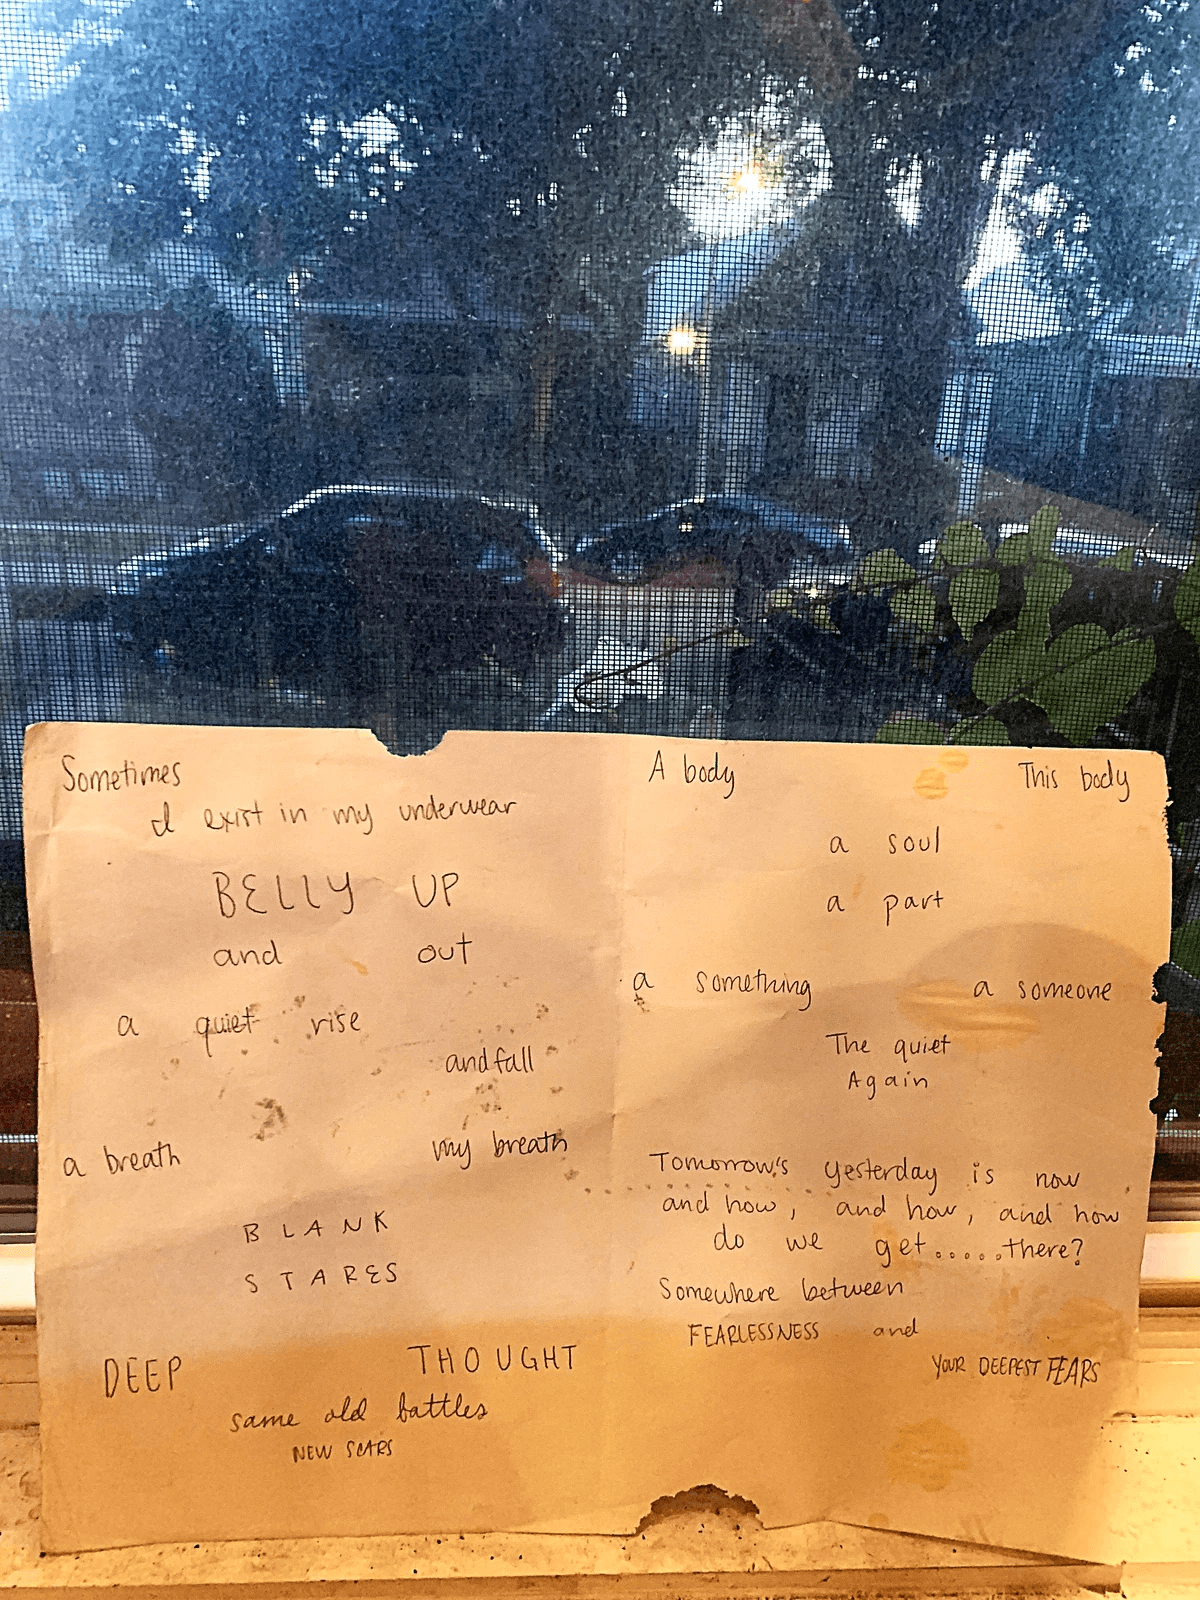 Sometimes
I exist in my underwear
BELLY UP
and out
a quiet rise
and fall
a breath my breath
BLANK
STARES
DEEP THOUGHT
same old battles
NEW SCARS
A body This body
a soul
a part
a something a someone
The quiet
Again
Tomorrow's yesterday is now
and how, and how, and how
do we get.....there?
Somewhere between
FEARLESSNESS and
YOUR DEEPEST FEARS